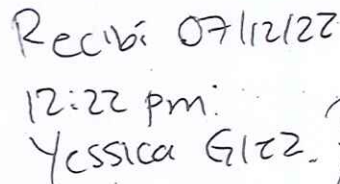 Recibí 07/12/22
12:22 pm.
Yessica Glez.